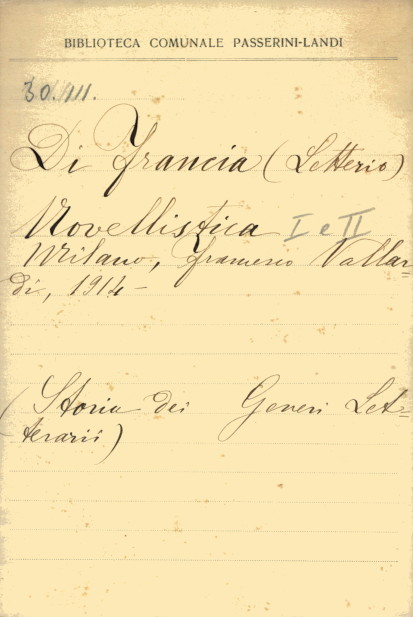 BIBLIOTECA COMUNALE PASSERINI-LANDI
30.III.
Di Francia (Letterio)
Novellistica I e II
Milano, Francesco Vallar=
di, 1914 -
(Storia dei Generi Let=
terarii)